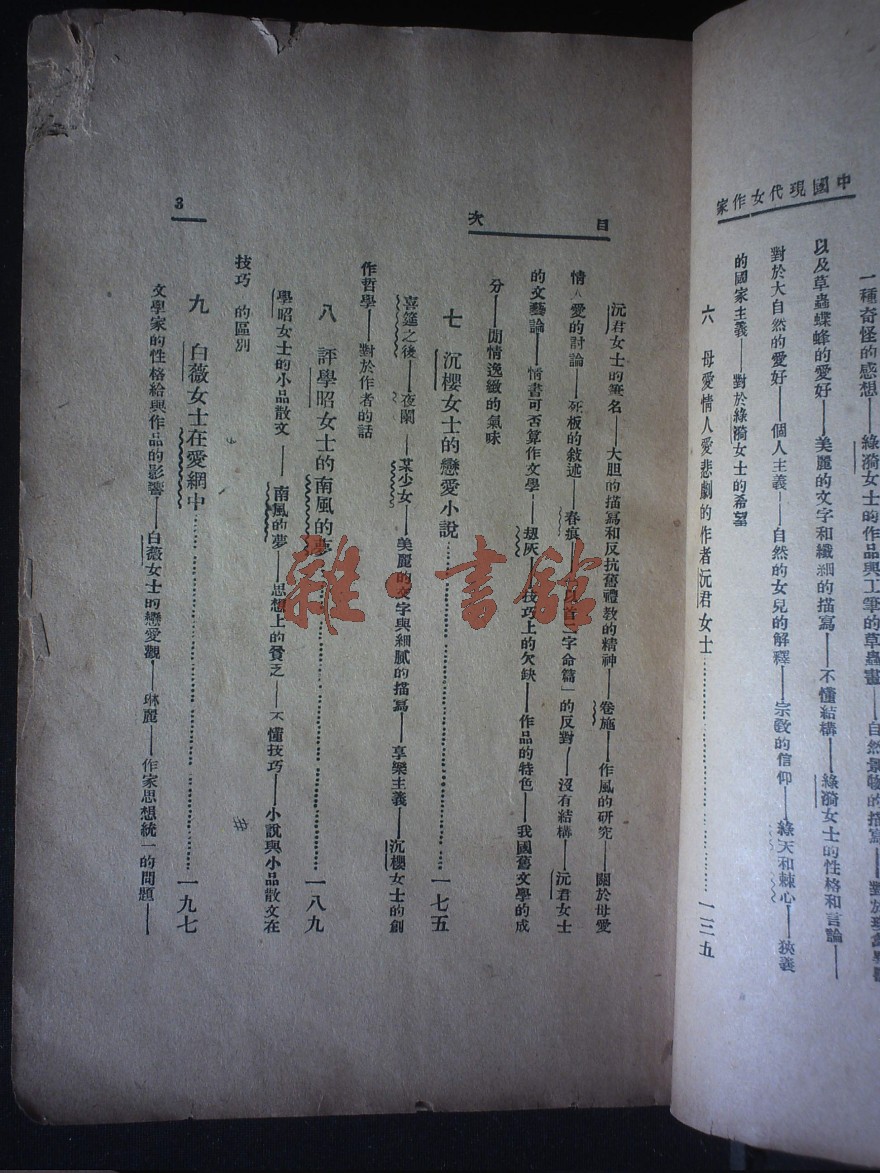 中國現代女作家
一種奇怪的感想——綠漪女士的作品與工筆的草蟲畫——自然景物的描寫——對於
以及草蟲蝶蜂的愛好——美麗的文字和纖細的描寫——不懂結構——綠漪女士的性格和言論——
對於大自然的愛好——個人主義——自然的女兒的解釋——宗教的信仰——綠天和棘心——狹義
的國家主義——對於綠漪女士的希望
六 母愛情人愛悲劇的作者沅君女士……一三五
目次
沅君女士的筆名——大胆的描寫和反抗舊禮教的精神——卷施——作風的研究——關於母愛
情人愛的討論——死板的敘述——春痕——以首二字命篇」的反對——沒有結構——沅君女士
的文藝論——情書可否算作文學——刼灰——技巧上的欠缺——作品的特色——我國舊文學的成
分——閒情逸緻的氣味
七 沉櫻女士的戀愛小說……一七五
喜筵之後——夜闌——某少女——美麗的文字與細膩的描寫——享樂主義——沉櫻女士的創
作哲學——對於作者的話
八 評學昭女士的南風的夢……一八九
學昭女士的小品散文——南風的夢——思想上的貧乏——不懂技巧——小說與小品散文在
技巧 的區別
九 白薇女士在愛網中……一九七
文學家的性格給與作品的影響——白薇女士的戀愛觀——琳麗——作家思想統一的問題——
3
雜·書館